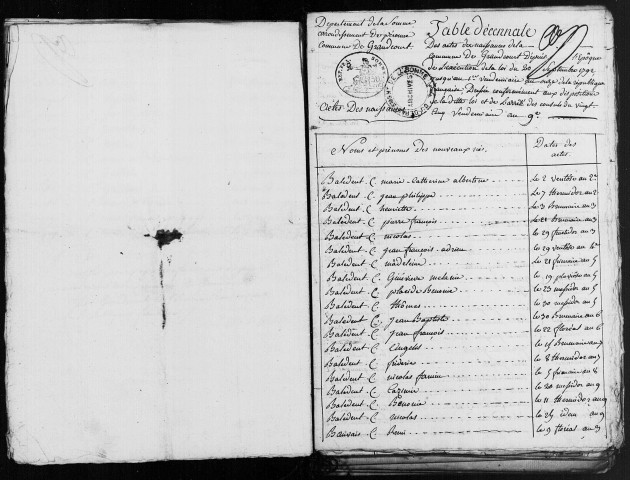 Departement de la Somme
arrondissement de péronne
Commune de Grandcourt
Actes De naissances
Table décennale
Des actes de naissances de la
Commune de Grandcourt depuis l'époque
de l'exécution de la loi du 20 Septembre 1792
jusqu'au 1er vendemiaire an onze de la république
française; Dressée conformément aux dispositions
de la ditte loi et de l'arrêté des consuls du vingt
cinq vendemiaire an 9e
Noms et prénoms des nouveaux nés.
Dates des actes.
Balédent. C. marie Catherine albertine le 2 ventôse au 2e
Balédent. C. jean philippe le 7 thermidor au 2
Balédent. C. henriette le 3 brumaire an 3
Balédent. C. pierre françois le 21 brumaire an 3
Balédent. C. nicolas le 29 an 3
Balédent. C. jean françois adrien le 29 ventôse an
Balédent. C. madeleine le 21 frimaire an 5
Balédent. C. Géneviève le 19 pluviôse an 5
Balédent. C. placide le 23 messidor an 5
Balédent. C. thomas le 30 messidor an 5
Balédent. C. jean Baptiste le 30 Brumaire an 6
Balédent. C. jean françois le 22 floréal an 6
Balédent. C. le 15 Brumaire an 7
Balédent. C. le 8 thermidor an 7
Balédent. C. nicolas le 5 frimaire an 8
Balédent. C. Casimir le 20 messidor an 9
Balédent. C. le 11 thermidor an 9
Balédent. C. nicolas le 25 idem an 9
Beauvais. C. Remi le 9 floréal an 3